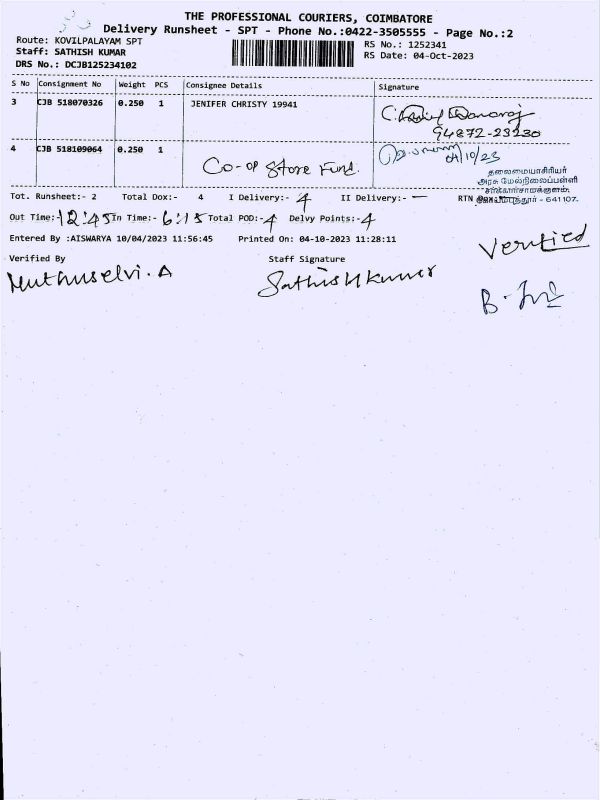 THE PROFESSIONAL COURIERS, COIMBATORE
Delivery Runsheet - SPT - Phone No.:0422-3505555 - Page No.:2
Route: KOVILPALAYAM SPT
RS No.: 1252341
Staff: SATHISH KUMAR
RS Date: 04-Oct-2023
DRS No.: DCJB125234102
S No Consignment No Weight PCS Consignee Details Signature
3 CJB 518070326 0.250 1 JENIFER CHRISTY 19941
94872-23230
4 CJB 518109064 0.250 1
Co-op Store Fund.
04/10/23
தலைமையாசிரியர்
அரசு மேல்நிலைப்பள்ளி
சர்க்கார்சாமக்குளம்,
கோயம்புத்தூர் - 641107.
Tot. Runsheet:- 2 Total Dox:- 4 I Delivery:- 4 II Delivery:- — RTN
Out Time:-12:45 In Time:- 6:15 Total POD:-4 Delvy Points:-4
Entered By :AISWARYA 10/04/2023 11:56:45 Printed On: 04-10-2023 11:28:11
Verified
Verified By Staff Signature
Muthuselvi.A Sathish Kumar